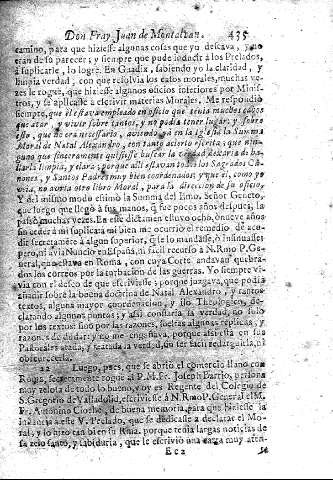 Don Fray Juan de Montalban. 435
camino, para que hiziesse algunas cosas que yo deseava, y no
eran de su parecer; y siempre que pude induzir à los Prelados,
à suplicarle, lo logrè. En Guadix, sabiendo yo la claridad, y
limpia verdad; con que resolvia los casos morales, muchas ve-
zes le roguè, que hiziesse algunos oficios inferiores por Minis-
tros, y se aplicasse à escrivir materias Morales. Me respondiò
siempre, que el estava empleado en oficio que tenia muchos cabos
que atar, y vivir sobre tantos, y no podia tener lugar; y sobre
esto, que no era necessario, aviendo yà en la Iglesia la Summa
Moral de Natal Alexandro, con tanto acierto escrita; que nin-
guno que sinceramente quisiesse buscar la verdad dexaria de ha-
llarla limpia, y clara; porque alli estavan todos los Sagrados Con-
cilios, y Santos Padres muy bien coordenados; y que èl, como yo
veìa, no avria otro libro Moral, para la direccion de su oficio.
Y del mismo modo estimò la Summa del Ilmo. Señor Geneto,
que luego que llegò à sus manos, que fue pocos años despues, la
usò muchas vezes. En este dictamen estuvo ocho, ò nueve años
sin ceder à mi suplica; ni bien me ocurriò el remedio de acu-
dir secretamente à algun superior, que se lo mandasse, ò insinuasse;
pero ni avia Nuncio en España, ni facil recurso à N. Rmo P. Ge-
neral, que estava en Roma, con cuya Corte andavan quebra-
dos los correos por la turbacion de las guerras. Yo siempre vi-
via con el deseo de que escriviesse; porque juzgava, que podia
añadir sobre la buena doctrina de Natal Alexandro, y tantos
textos, alguna mayor coordenacion, y filo Theologico, de-
clarando algunos puntos; y assi constaria la verdad, no solo
por los textos, sino por las razones, sueltas algunas replicas, y
razones de dudar; y no me engañava, porque assi està en sus
Pastorales usada, y tratada la verdad, sin ser facil redarguirla, ni
obscurecerla.
12 Luego, pues, que se abriò el comercio llano con
Roma, secretamente roguè al P. M. Fr. Joseph Barrio, persona
muy zelosa de todo lo bueno, y oy es Regente del Colegio de
S. Gregorio de Valladolid, escriviesse à N. Rmo P. General el M.
Fr. Antonino Cloche, de buena memoria, para que hiziesse la
instancia à este V. Prelado, que se dedicasse à declarar el Mo-
ral, y lo hizo tan bien su Rma. porque tenia largas noticias de
su zelo santo, y sabiduria, que le escriviò una carta muy aten-
Ee 2